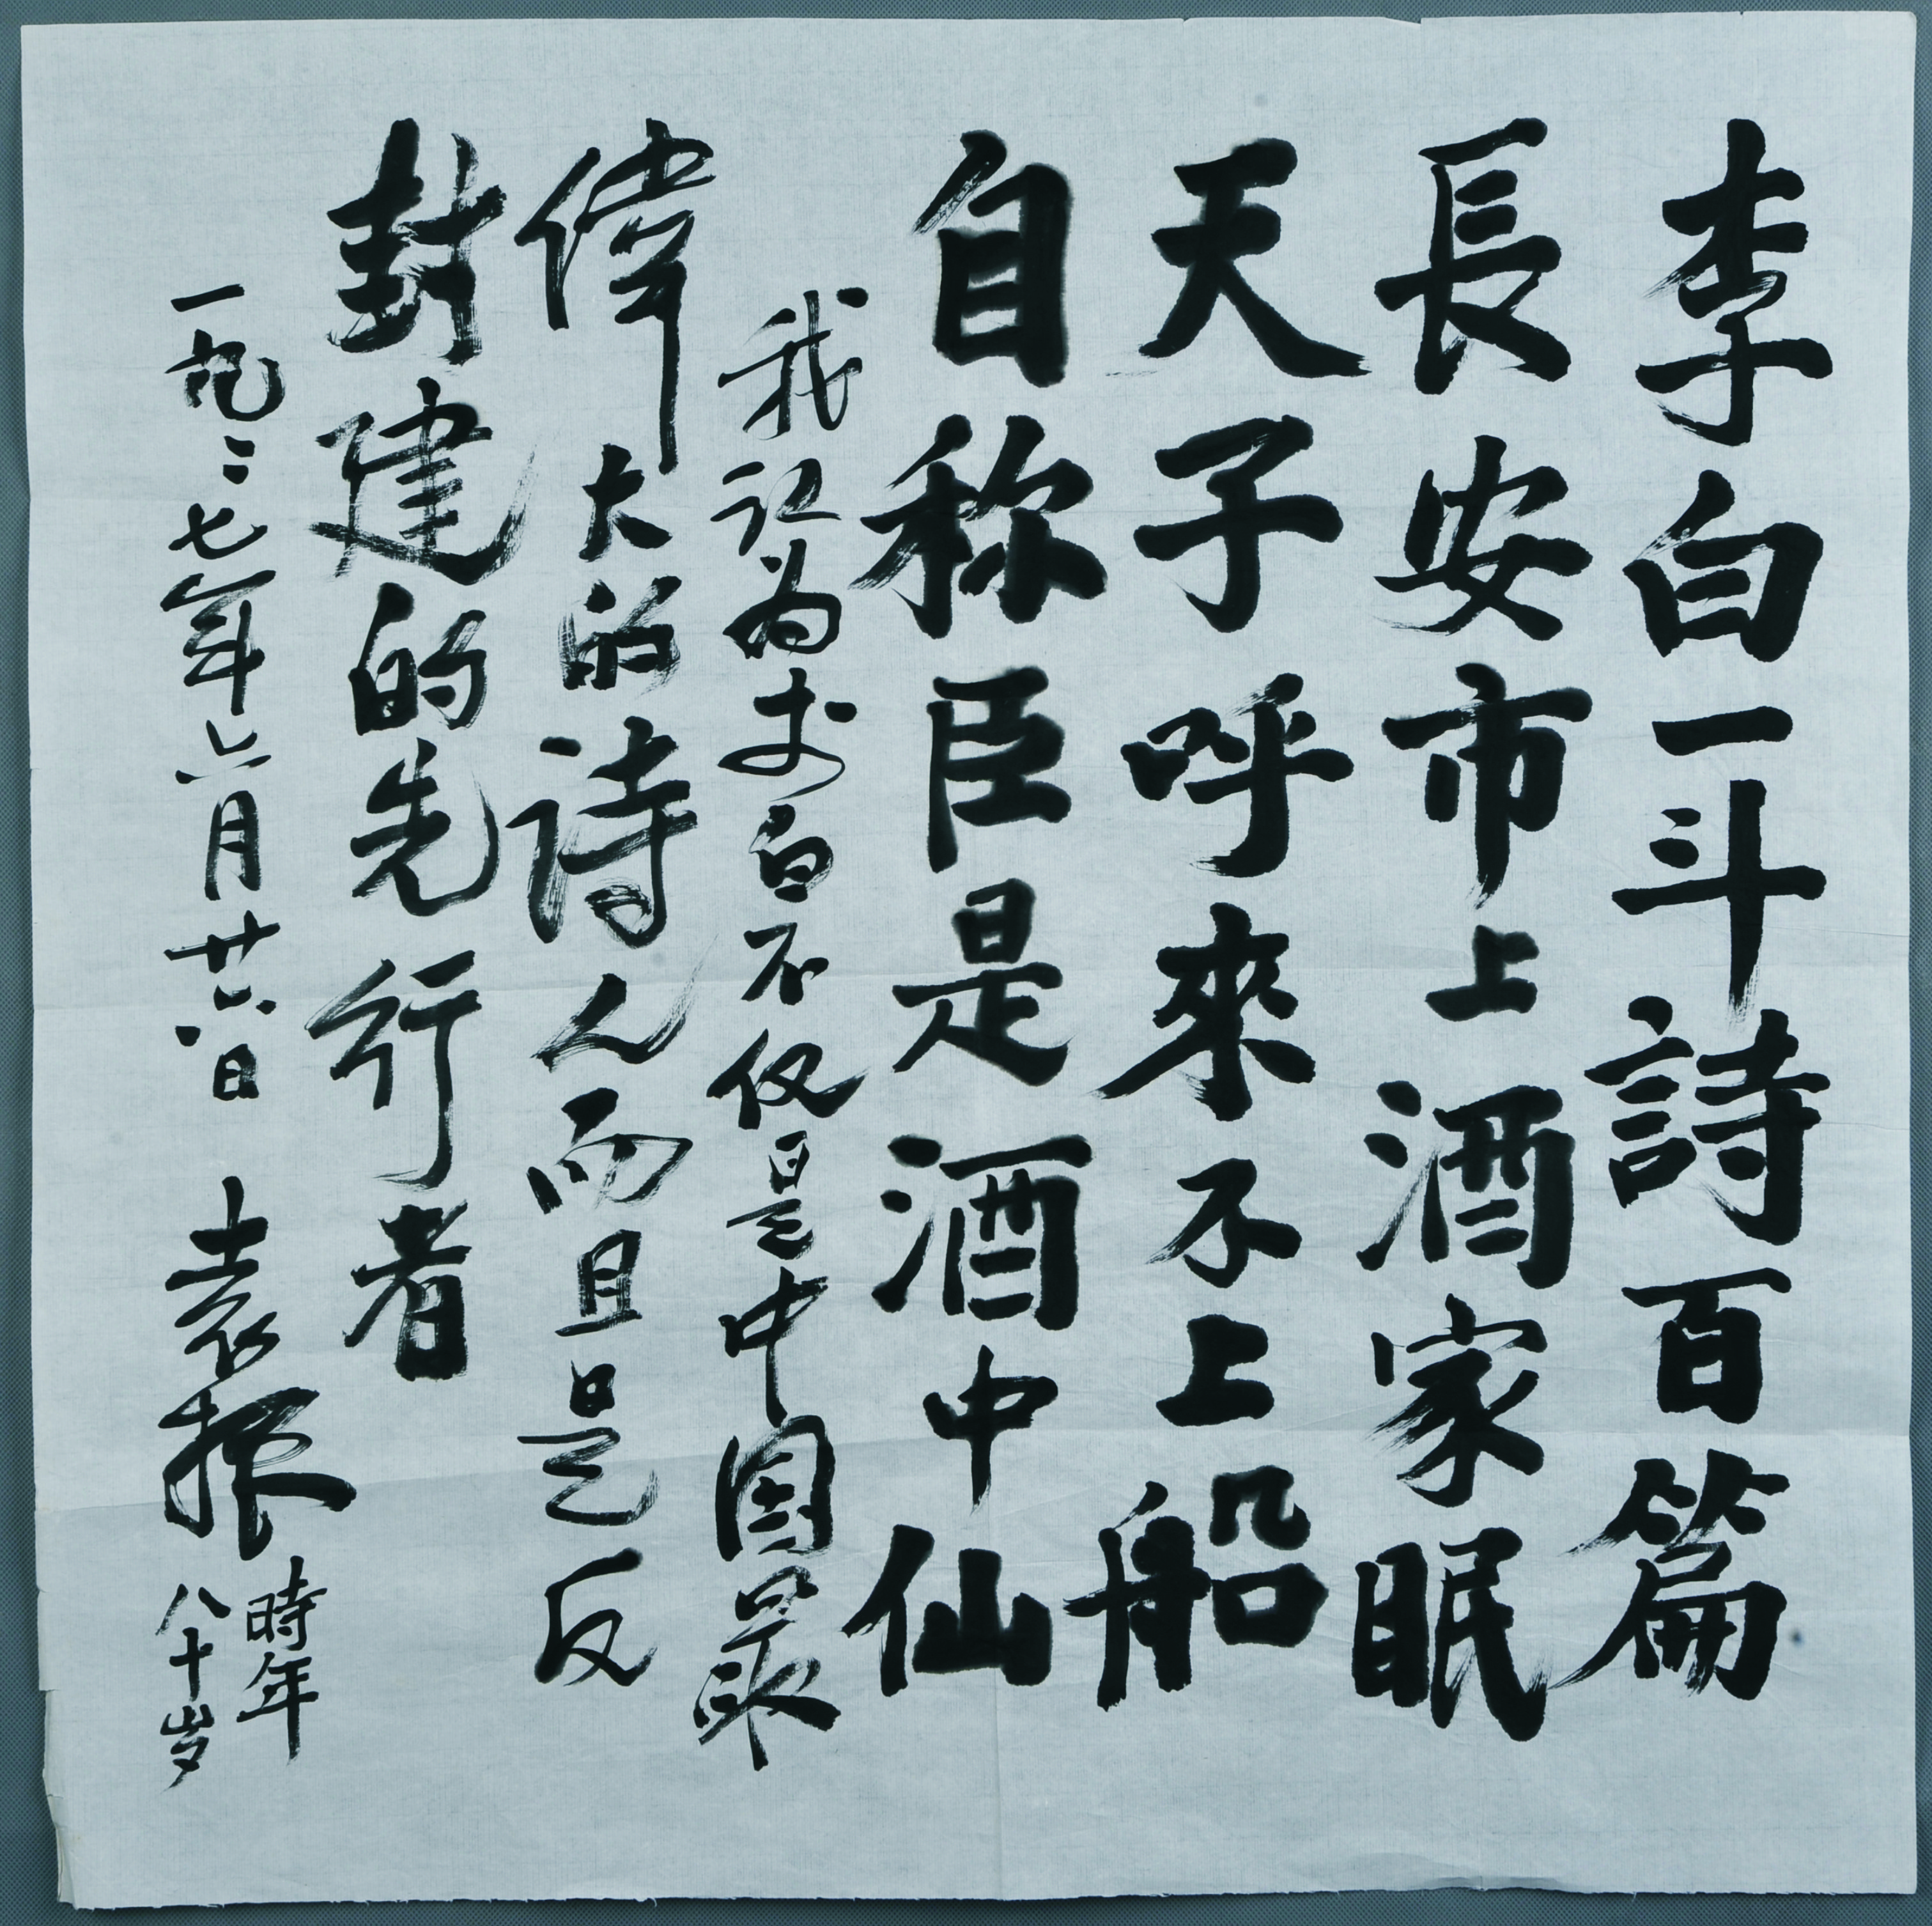 李白一斗詩百篇
長安市上酒家眠
天子呼來不上船
自称臣是酒中仙
我认为李白不仅是中国最
偉大的詩人而且是反
封建的先行者
一九〻七年六月廿六日 袁振
時年
八十岁